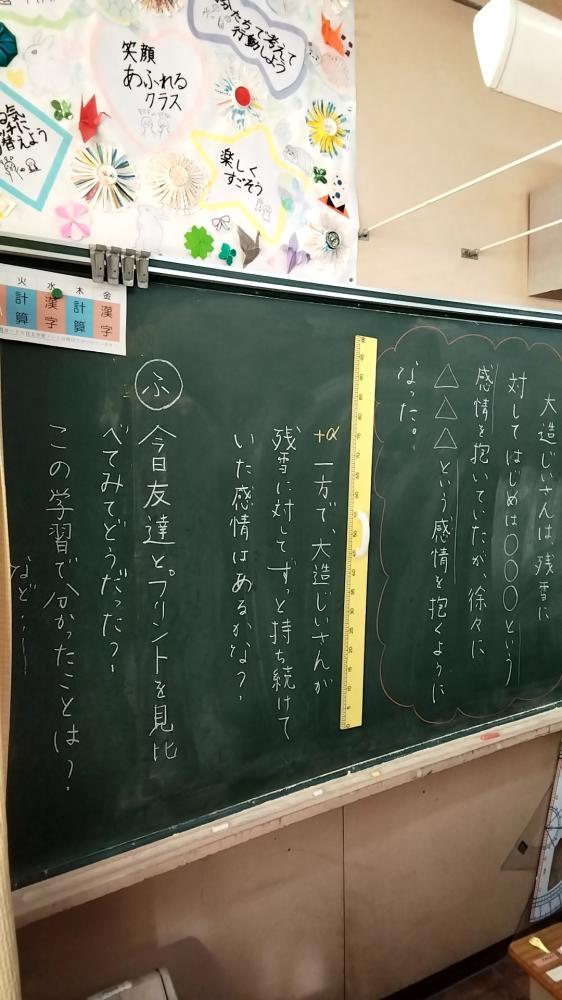 分たちで考えて
行動しよう
笑顔
あふれる
クラス
楽しく
すごそう
る気に
替えよう
火 水 木 金
計算 漢字 計算 漢字
大造じいさんは、残雪に
対してはじめは○○○という
感情を抱いていたが、徐々に
△△△という感情を抱くように
なった。
+α 一方で、大造じいさんが
残雪に対してずっと持ち続けて
いた感情はあるかな?
ふ 今日友達とプリントを見比
べてみてどうだった?
この学習で分かったことは?
など…